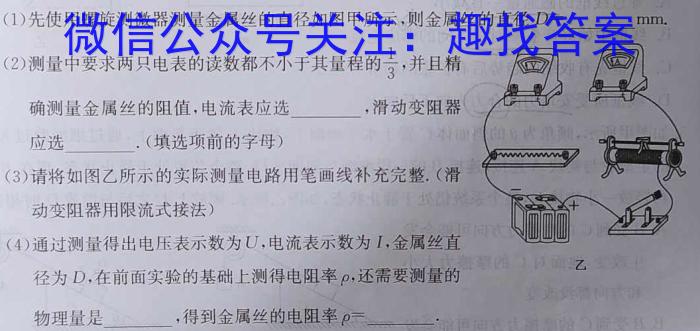 (1)先使用螺旋测微器测量金属丝的直径如图甲所示,则金属丝的直径D mm.
微信公众号关注：趣找答案
(2)测量中要求两只电表的读数都不小于其量程的1/3,并且精
确测量金属丝的阻值,电流表应选________,滑动变阻器
应选________.(填选项前的字母)
(3)请将如图乙所示的实际测量电路用笔画线补充完整.(滑
动变阻器用限流式接法)
(4)通过测量得出电压表示数为U,电流表示数为I,金属丝直
径为D,在前面实验的基础上测得电阻率ρ,还需要测量的
物理量是________,得到金属丝的电阻率ρ=________.
V
A
+
乙